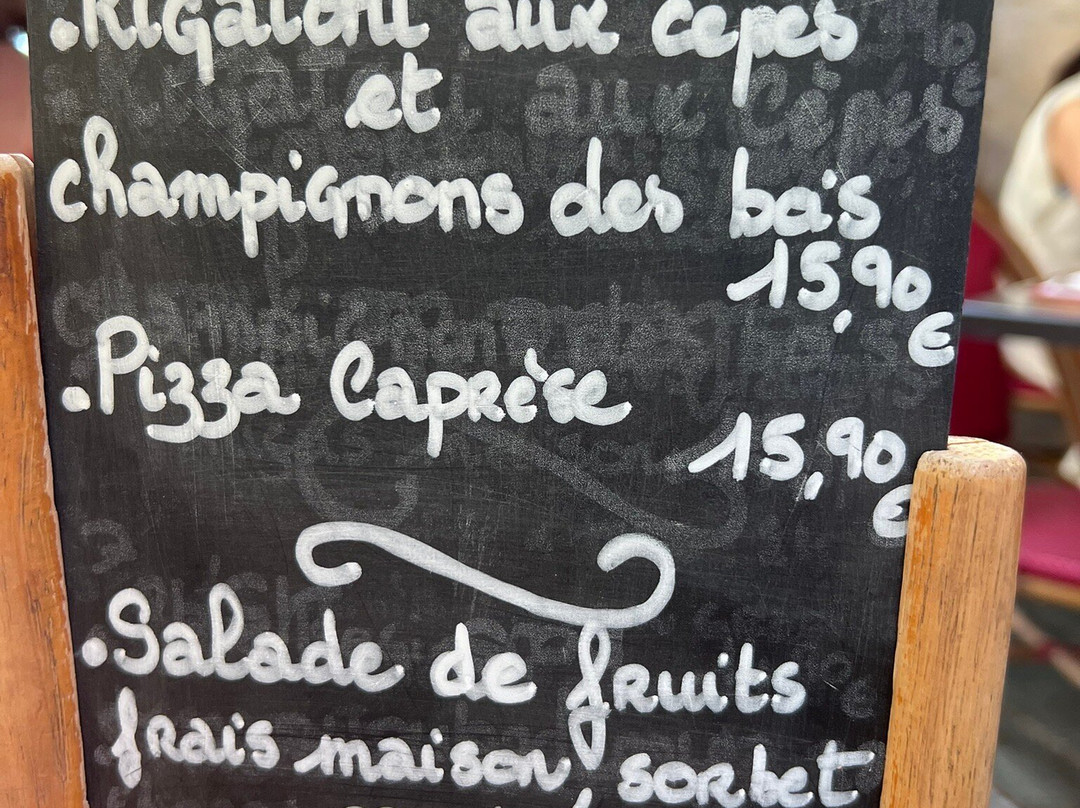 .Rigatoni aux cèpes
et
champignons des bois
15,90
€
.Pizza Caprèse
15,90
€
.Salade de fruits
frais maison, sorbet